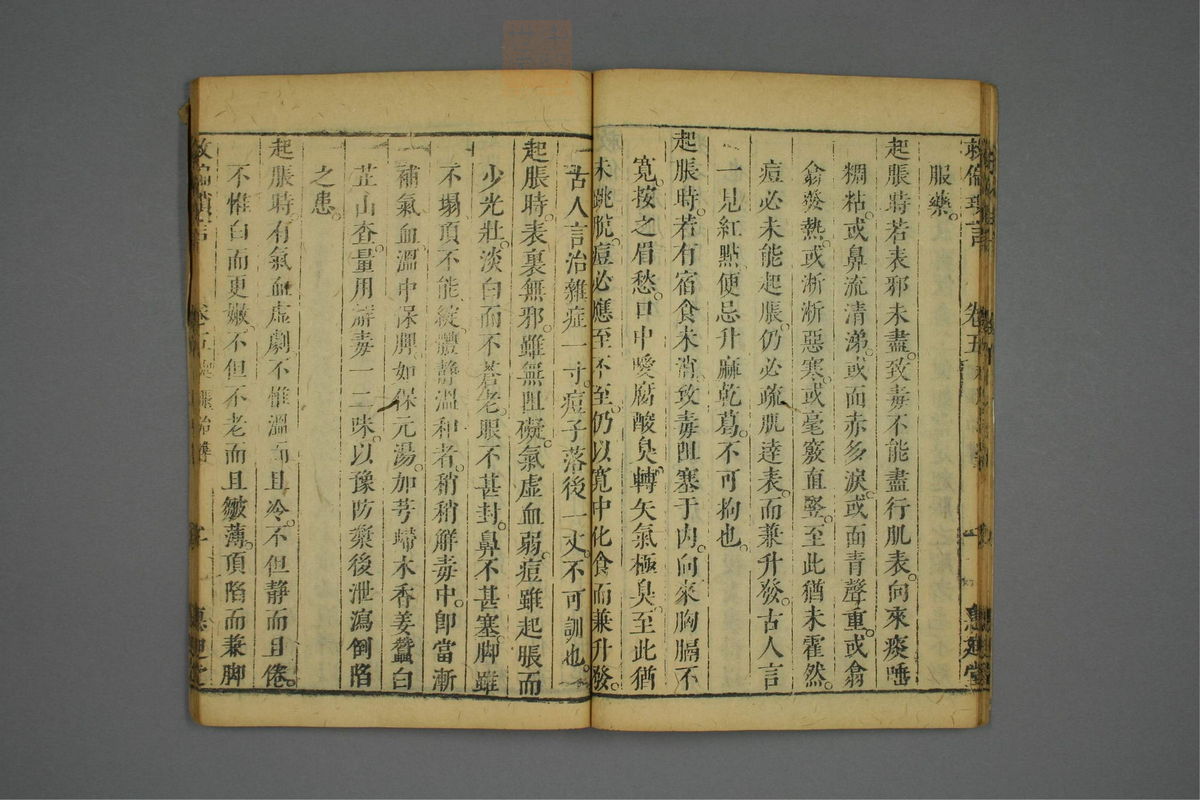 服藥。
起脹時若表邪未盡。致毒不能盡行肌表。向來痰唾
稠粘。或鼻流清涕。或面赤多淚。或面青聲重。或翕
翕發熱。或淅淅惡寒。或毫竅直竪。至此猶未霍然。
痘必未能起脹。仍必疏肌達表。而兼升發。古人言
一見紅點便忌升麻乾葛。不可拘也。
起脹時。若有宿食未消。致毒阻塞于内。向來胸膈不
寬。按之眉愁。口中噯腐酸臭。轉矢氣極臭。至此猶
未跳脫。痘必應至不至。仍以寬中化食而兼升發。
古人言治雜症一寸。痘子落後一丈。不可訓也。
起脹時。表裏無邪。雖無阻礙。氣虛血弱。痘雖起脹而
少光壯。淡白而不蒼老。眼不甚封。鼻不甚塞。脚雖
不塌。頂不能綻。體靜溫和者。稍稍解毒中。即當漸
補氣血。溫中保脾。如保元湯。加芎歸木香姜蠶白
芷山査。量用解毒一二味。以豫防藥後泄瀉倒陷
之患。
起脹時。有氣血虛劇。不惟溫而且冷。不但靜而且倦。
不惟白而更嫩。不但不老而且皺薄。頂陷而兼脚